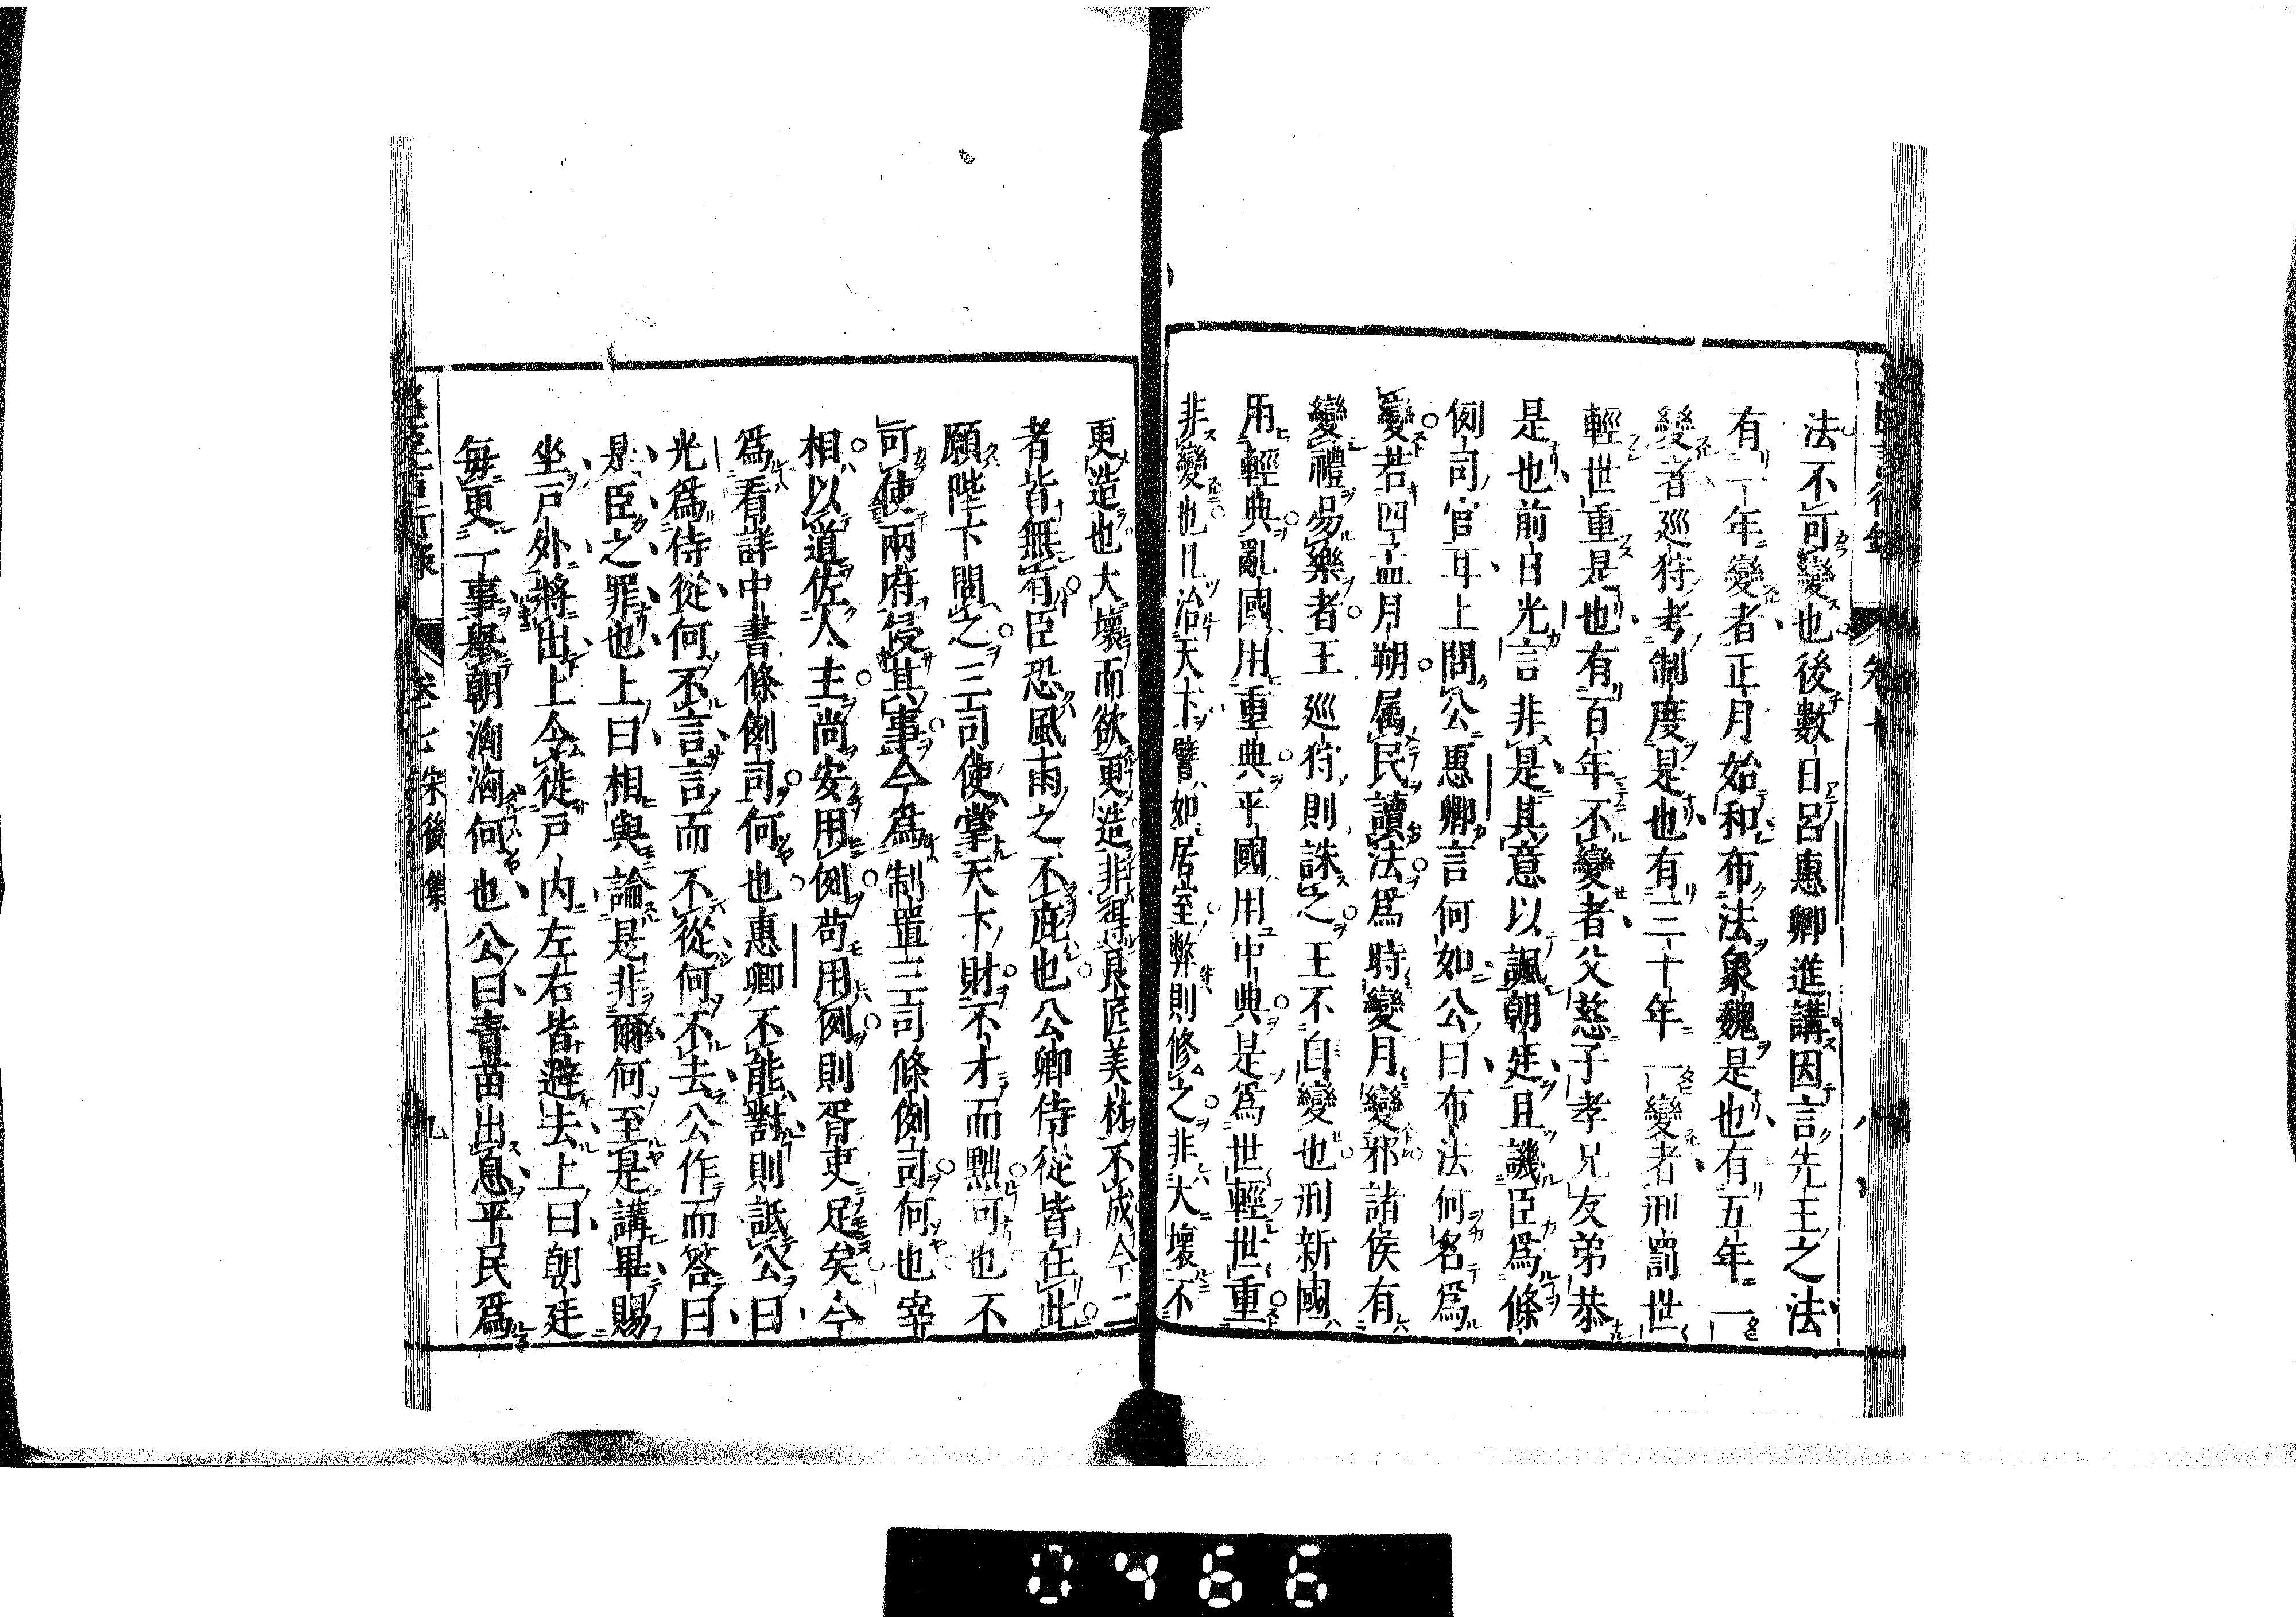 法不可變也後數日呂惠卿進講因言先王之法
有一年變者正月始和布法象魏是也有五年一
變者巡狩考制度是也有三十年一變者刑罰世
輕世重是也有百年不變者父慈子孝兄友弟恭
是也前日光言非是其意以諷朝廷且譏臣爲條
例司官耳上問公惠卿言何如公曰布法何名爲
變若四孟月朔属民讀法爲時變月變邪諸侯有
變禮易樂者王巡狩則誅之王不自變也刑新國
用輕典亂國用重典平國用中典是爲世輕世重
非變也且治天下譬如居室弊則修之非大壞不
更造也大壞而欲更造非得良匠美材不成今二
者皆無有臣恐風雨之不庇也公卿侍從皆在此
願陛下問之三司使掌天下財不才而黜可也不
可使兩府侵其事今爲制置三司條例司何也宰
相以道佐人主尚安用例苟用例則胥吏足矣今
爲看詳中書條例司何也惠卿不能對則詆公曰
光爲侍從何不言言而不從何不去公作而答曰
是臣之罪也上曰相與論是非爾何至是講畢賜
坐戸外將出上令徙戸内左右皆避去上曰朝廷
每更一事舉朝洶洶何也公曰青苗出息平民爲
宋後集
0466